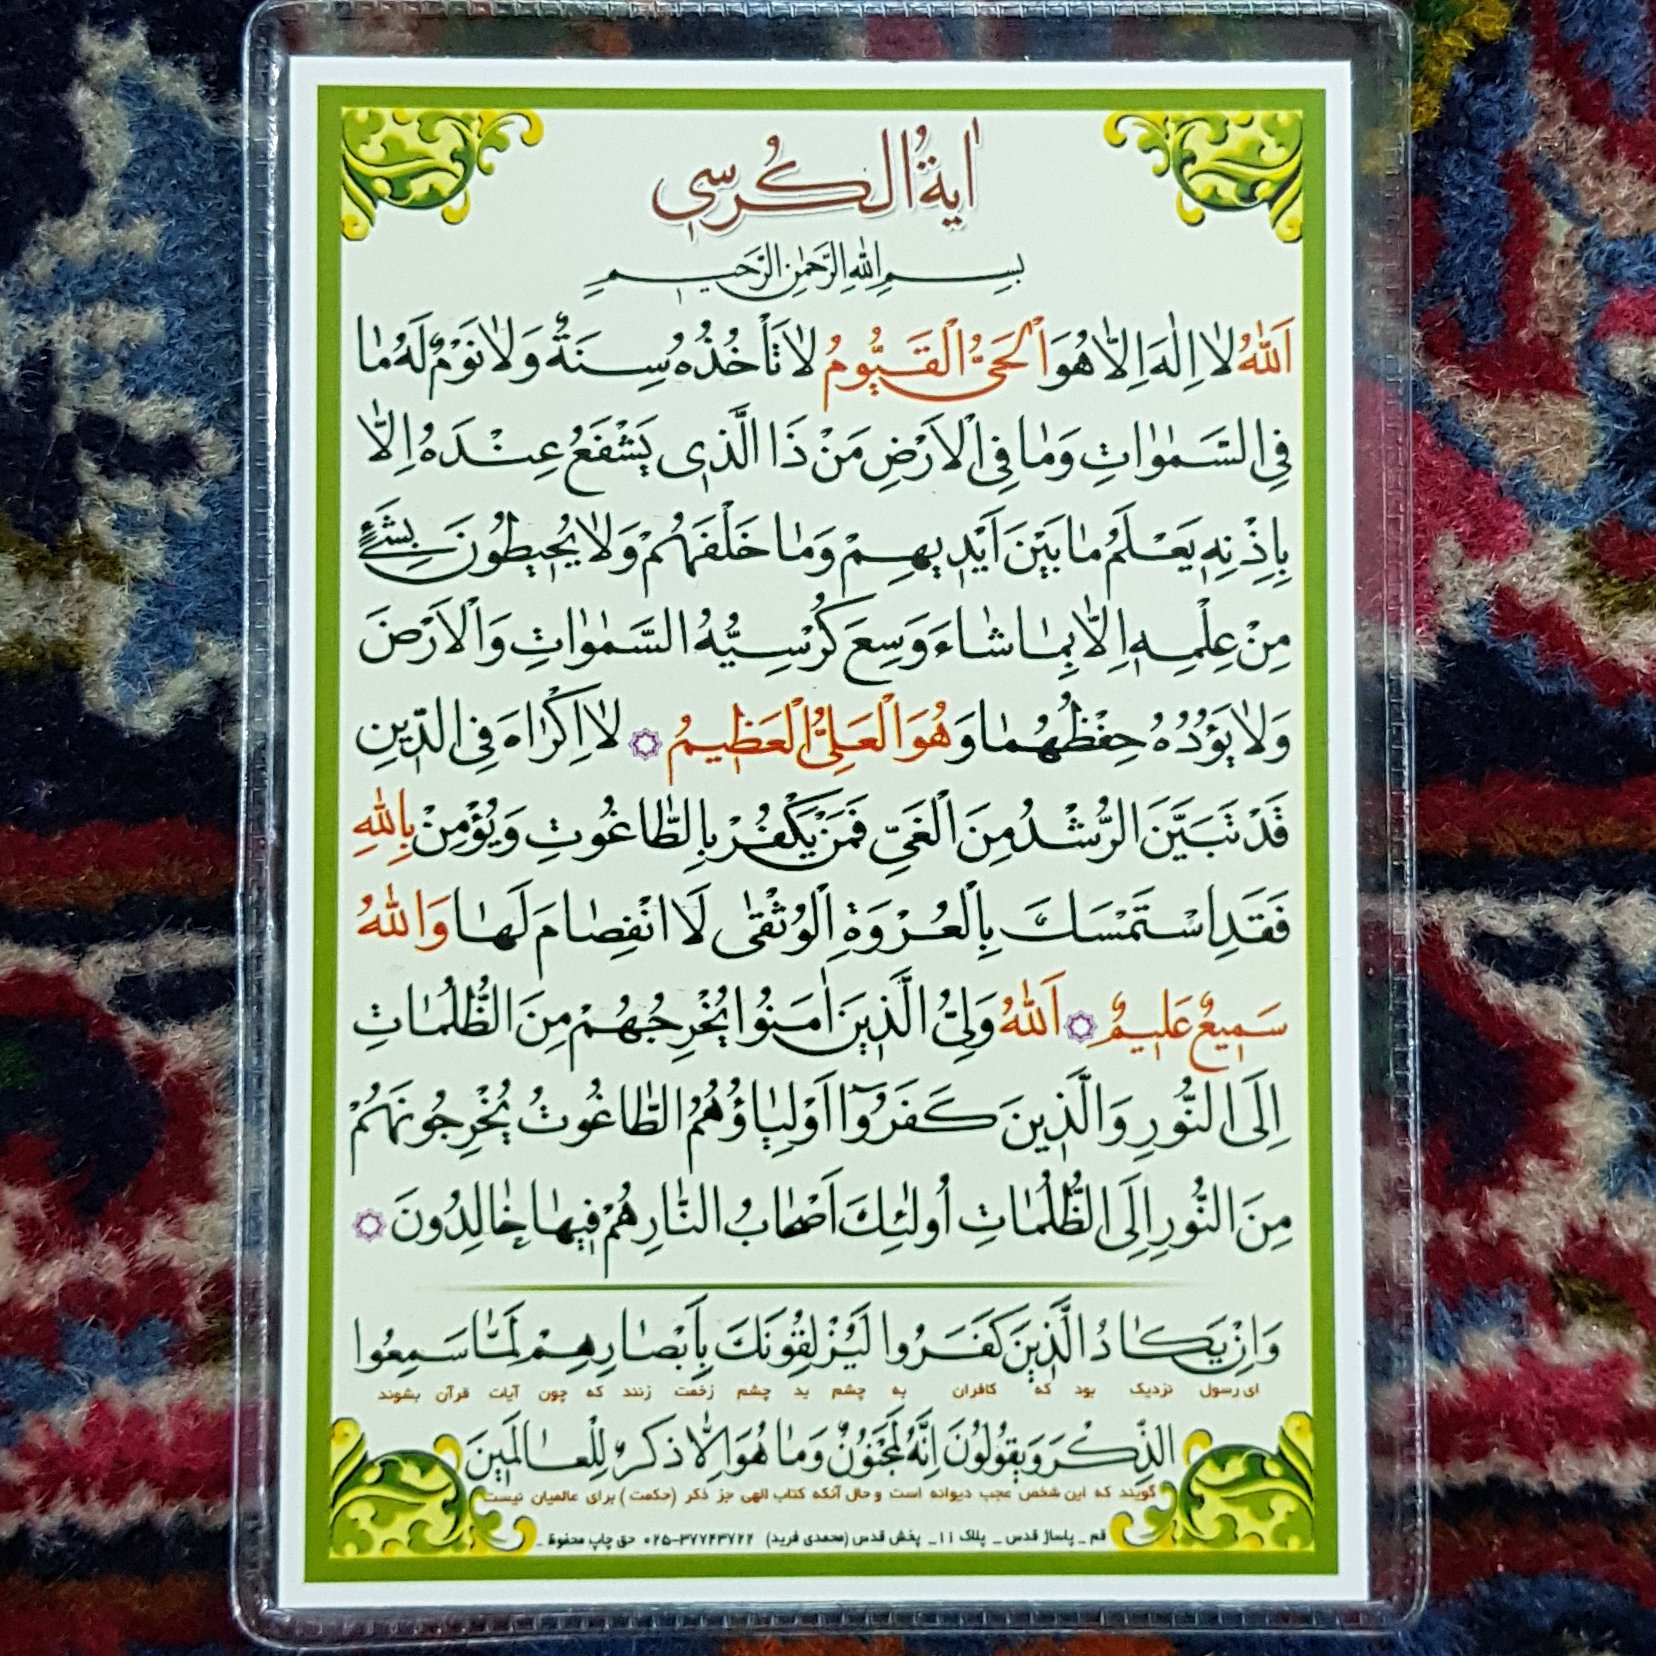 اٰيَةُ الْكُرْسِي
بِسْمِ اللّٰهِ الرَّحْمٰنِ الرَّحِيمِ
اَللّٰهُ لاٰ اِلٰهَ اِلاّٰ هُوَ الْحَيُّ الْقَيُّومُ لاٰ تَأْخُذُهُ سِنَةٌ وَلاٰ نَوْمٌ لَهُ مٰا
فِي السَّمٰوٰاتِ وَمٰا فِي الْاَرْضِ مَنْ ذَا الَّذِي يَشْفَعُ عِنْدَهُ اِلاّٰ
بِاِذْنِهِ يَعْلَمُ مٰا بَيْنَ اَيْدِيهِمْ وَمٰا خَلْفَهُمْ وَلاٰ يُحِيطُونَ بِشَيْءٍ
مِنْ عِلْمِهِ اِلاّٰ بِمٰا شٰاءَ وَسِعَ كُرْسِيُّهُ السَّمٰوٰاتِ وَالْاَرْضَ
وَلاٰ يَؤُدُهُ حِفْظُهُمٰا وَهُوَ الْعَلِيُّ الْعَظِيمُ ۞ لاٰ اِكْرٰاهَ فِي الدِّينِ
قَدْ تَبَيَّنَ الرُّشْدُ مِنَ الْغَيِّ فَمَنْ يَكْفُرْ بِالطّٰاغُوتِ وَيُؤْمِنْ بِاللّٰهِ
فَقَدِ اسْتَمْسَكَ بِالْعُرْوَةِ الْوُثْقٰى لَا انْفِصٰامَ لَهٰا وَاللّٰهُ
سَمِيعٌ عَلِيمٌ ۞ اَللّٰهُ وَلِيُّ الَّذِينَ اٰمَنُوا يُخْرِجُهُمْ مِنَ الظُّلُمٰاتِ
اِلَى النُّورِ وَالَّذِينَ كَفَرُوٓا اَوْلِيٰاؤُهُمُ الطّٰاغُوتُ يُخْرِجُونَهُمْ
مِنَ النُّورِ اِلَى الظُّلُمٰاتِ اُولٰئِكَ اَصْحٰابُ النّٰارِ هُمْ فِيهٰا خٰالِدُونَ ۞
وَاِنْ يَكٰادُ الَّذِينَ كَفَرُوا لَيُزْلِقُونَكَ بِاَبْصٰارِهِمْ لَمّٰا سَمِعُوا
ای رسول نزدیک بود که کافران به چشم بد چشم زخمت زنند که چون آیات قرآن بشنوند
الذِّكْرَ وَيَقُولُونَ اِنَّهُ لَمَجْنُونٌ وَمٰا هُوَ اِلاّٰ ذِكْرٌ لِلْعٰالَمِينَ
گویند که این شخص عجب دیوانه است و حال آنکه کتاب الهی جز ذکر (حکمت) برای عالمیان نیست
قم _ پاساژ قدس _ پلاک ۱۱_ پخش قدس (محمدی فرید) ۳۷۷۴۳۷۲۲-۰۲۵ حق چاپ محفوظ _